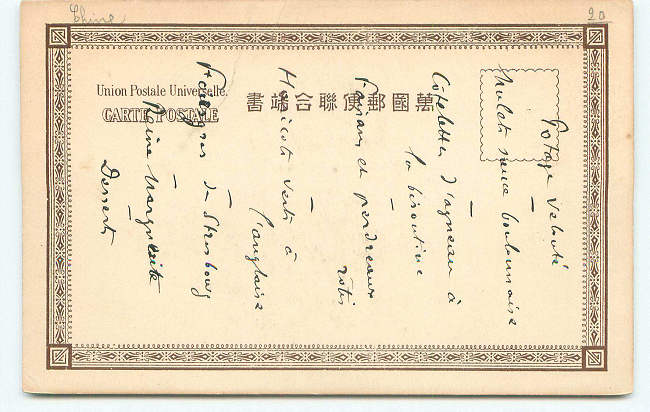 Chine
20
Union Postale Universelle.
CARTE POSTALE
萬國郵便聯合端書
Potage velouté
—
Mulets sauce boulonnaise
—
Côtelettes d'agneau à
la bisontine
—
Faisans et perdreaux
rôtis
—
Haricots verts à
l'anglaise
—
gras de Strasbourg
—
Reine Marguerite
—
Dessert